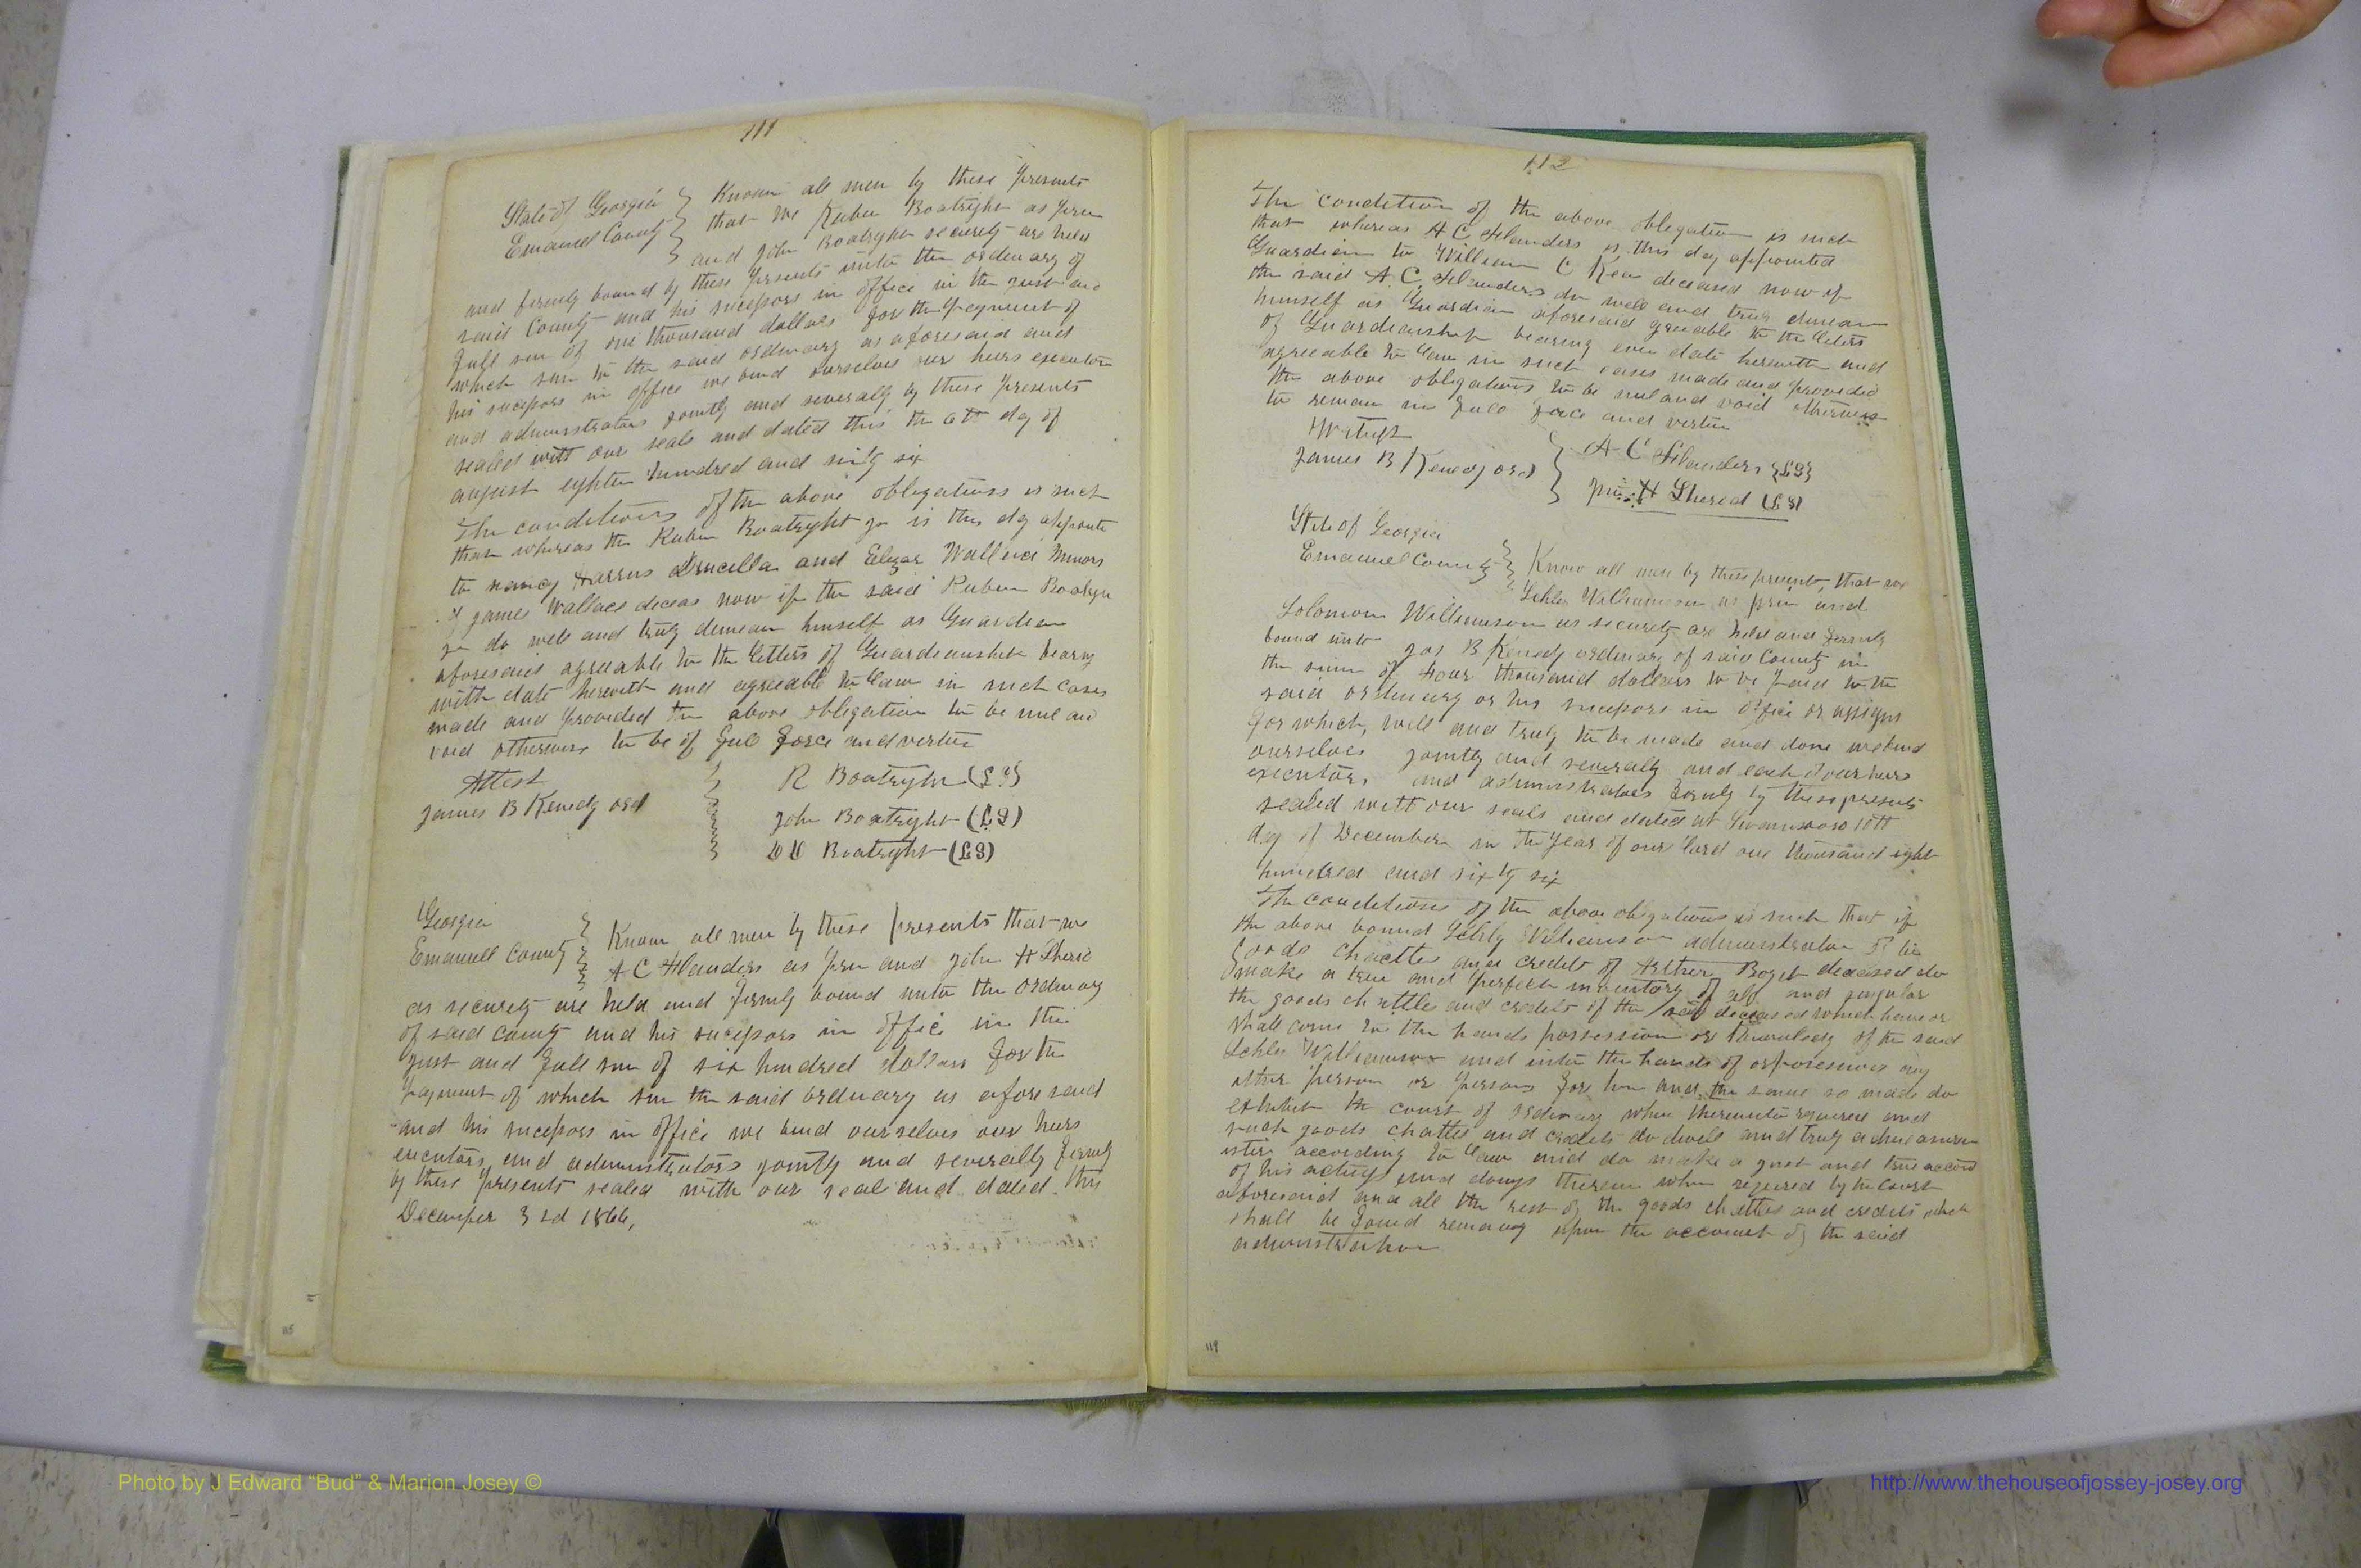 111
State of Georgia } Known all men by these presents
Emanuel County } that we Ruben Boatright as prin
and John Boatright security are held
and firmly bound by these presents unto the ordinary of
said County and his sucessors in office in the just and
full sum of one thousand dollars for the payment of
which sum to the said ordinary as aforesaid and
his sucessors in office we bind ourselves our heirs executors
and administrators jointly and severaly by these presents
sealed witt our seals and dated this the 6th day of
august eighten hundred and sixty six
The conditions of the above obligations is such
that whereas the Ruben Boatright jr is this day appointe
to nancy Drucilla and Wallace minors
of James Wallace deceas now if the said Ruben Boatrgr
jr do well and truly demean himself as Guardian
aforesaid agreeable to the letters of Guardianship bearing
with date herewith and agreeable to law in such cases
made and provided the above obligation to be null and
void otherwise to be of full force and vertue
Attest } R Boatright (LS)
James B Kenedy ord } John Boatright (LS)
Boatright (LS)
Georgia } Know all men by these presents that we
Emanuell County } A C Flanders as prin and John H Sherod
as security are held and firmly bound unto the ordinary
of said county and his sucessors in office in the
just and full sum of six hundred dollars for the
payment of which sum the said ordinary as aforesaid
and his sucessors in office we bind ourselves our heirs
executors and administrators jointly and severally firmly
by these presents sealed with our seal and dated this
December 3rd 1866,
115
112
The condition of the above obligation is such
that whereas A C Flanders is this day appointed
Guardian to William C Kea deceased now if
the said A C Flanders do well and truly demean
himself as Guardian aforesaid greeable to the letters
of Guardianship bearing even date herewith and
agreeable to law in such cases made and provided
the above obligations to be nul and void otherwise
to remain in full force and vertue
Witness
James B Kenedy ord } A C Flanders {LS}
H Sherod (LS)
State of Georgia
Emanuel County } Know all men by these presents, that we
Williamson as prin and
Solomon Williamson as security are held and firmly
bound unto Jas B Kenedy ordinary of said County in
the sum of four thousand dollars to be paid to the
said ordinary or his sucessors in office or assigns
for which, well and truly to be made and done we bind
ourselves jointly and severally and each of our heirs
executors and administrators firmly by these presents
sealed witt our seals and dated at Swainsboro 10tt
day of December in the year of our lord one thousand eight
hundred and sixty six
The conditions of the above obligations is such that if
the above bound Williamson administrator of the
goods chactles and credits of Arther Boyet deceased do
make a true and perfect inventory of all and singular
the goods chattles and credits of the said deceased which have or
shall come to the hands possession or knowledg of the said
Williamson and into the hands of or posession any
other person or persons for him and the same so made do
exhibit the court of ordinary when thereunto required and
such goods chattles and credits do well and truly
ister according to law and do make a just and true accord
of his actings and doings therein when required by the court
aforesaid and all the rest of the goods chattles and credits which
shall be found remaing upon the account of the said
administration
119
Photo by J Edward “Bud” & Marion Josey ©
http://www.thehouseofjossey-josey.org